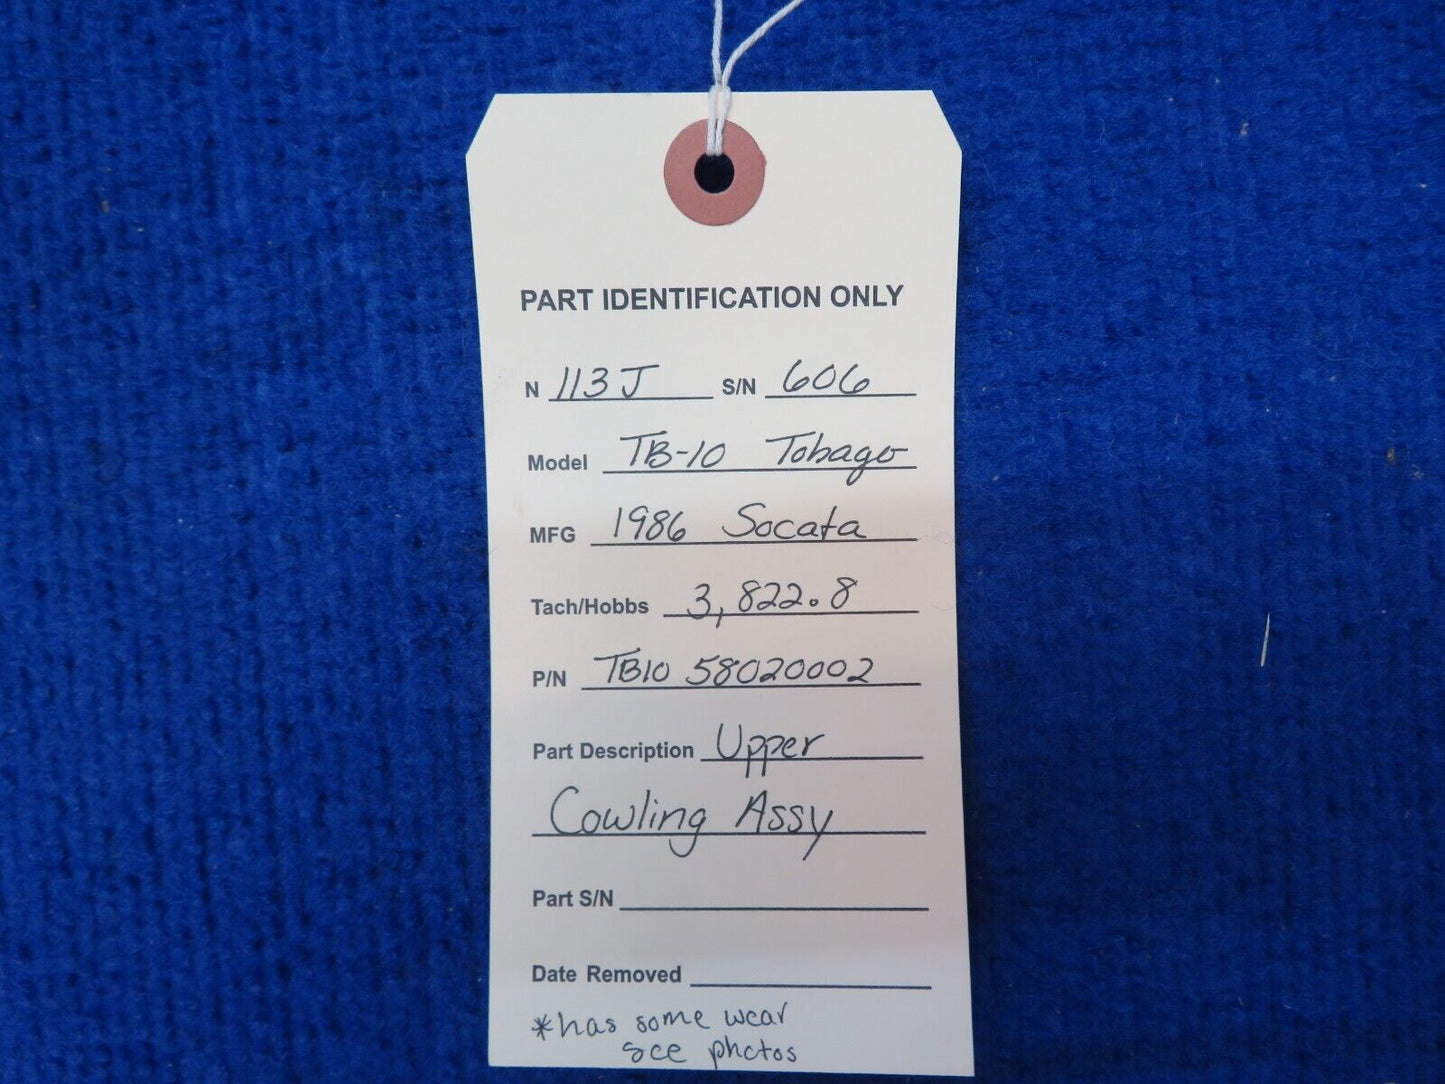 PART IDENTIFICATION ONLY
N 113J S/N 606
Model TB-10 Tobago
MFG 1986 Socata
Tach/Hobbs 3,822.8
P/N TB10 58020002
Part Description Upper
Cowling Assy
Part S/N
Date Removed
*has some wear
see photos